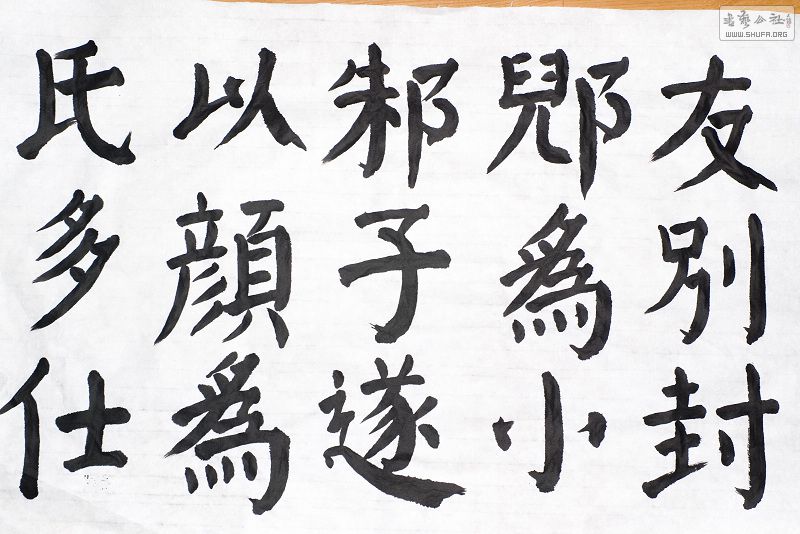 友別封
郳爲小
邾子遂
以顔爲
氏多仕
書藝公社
WWW.SHUFA.ORG